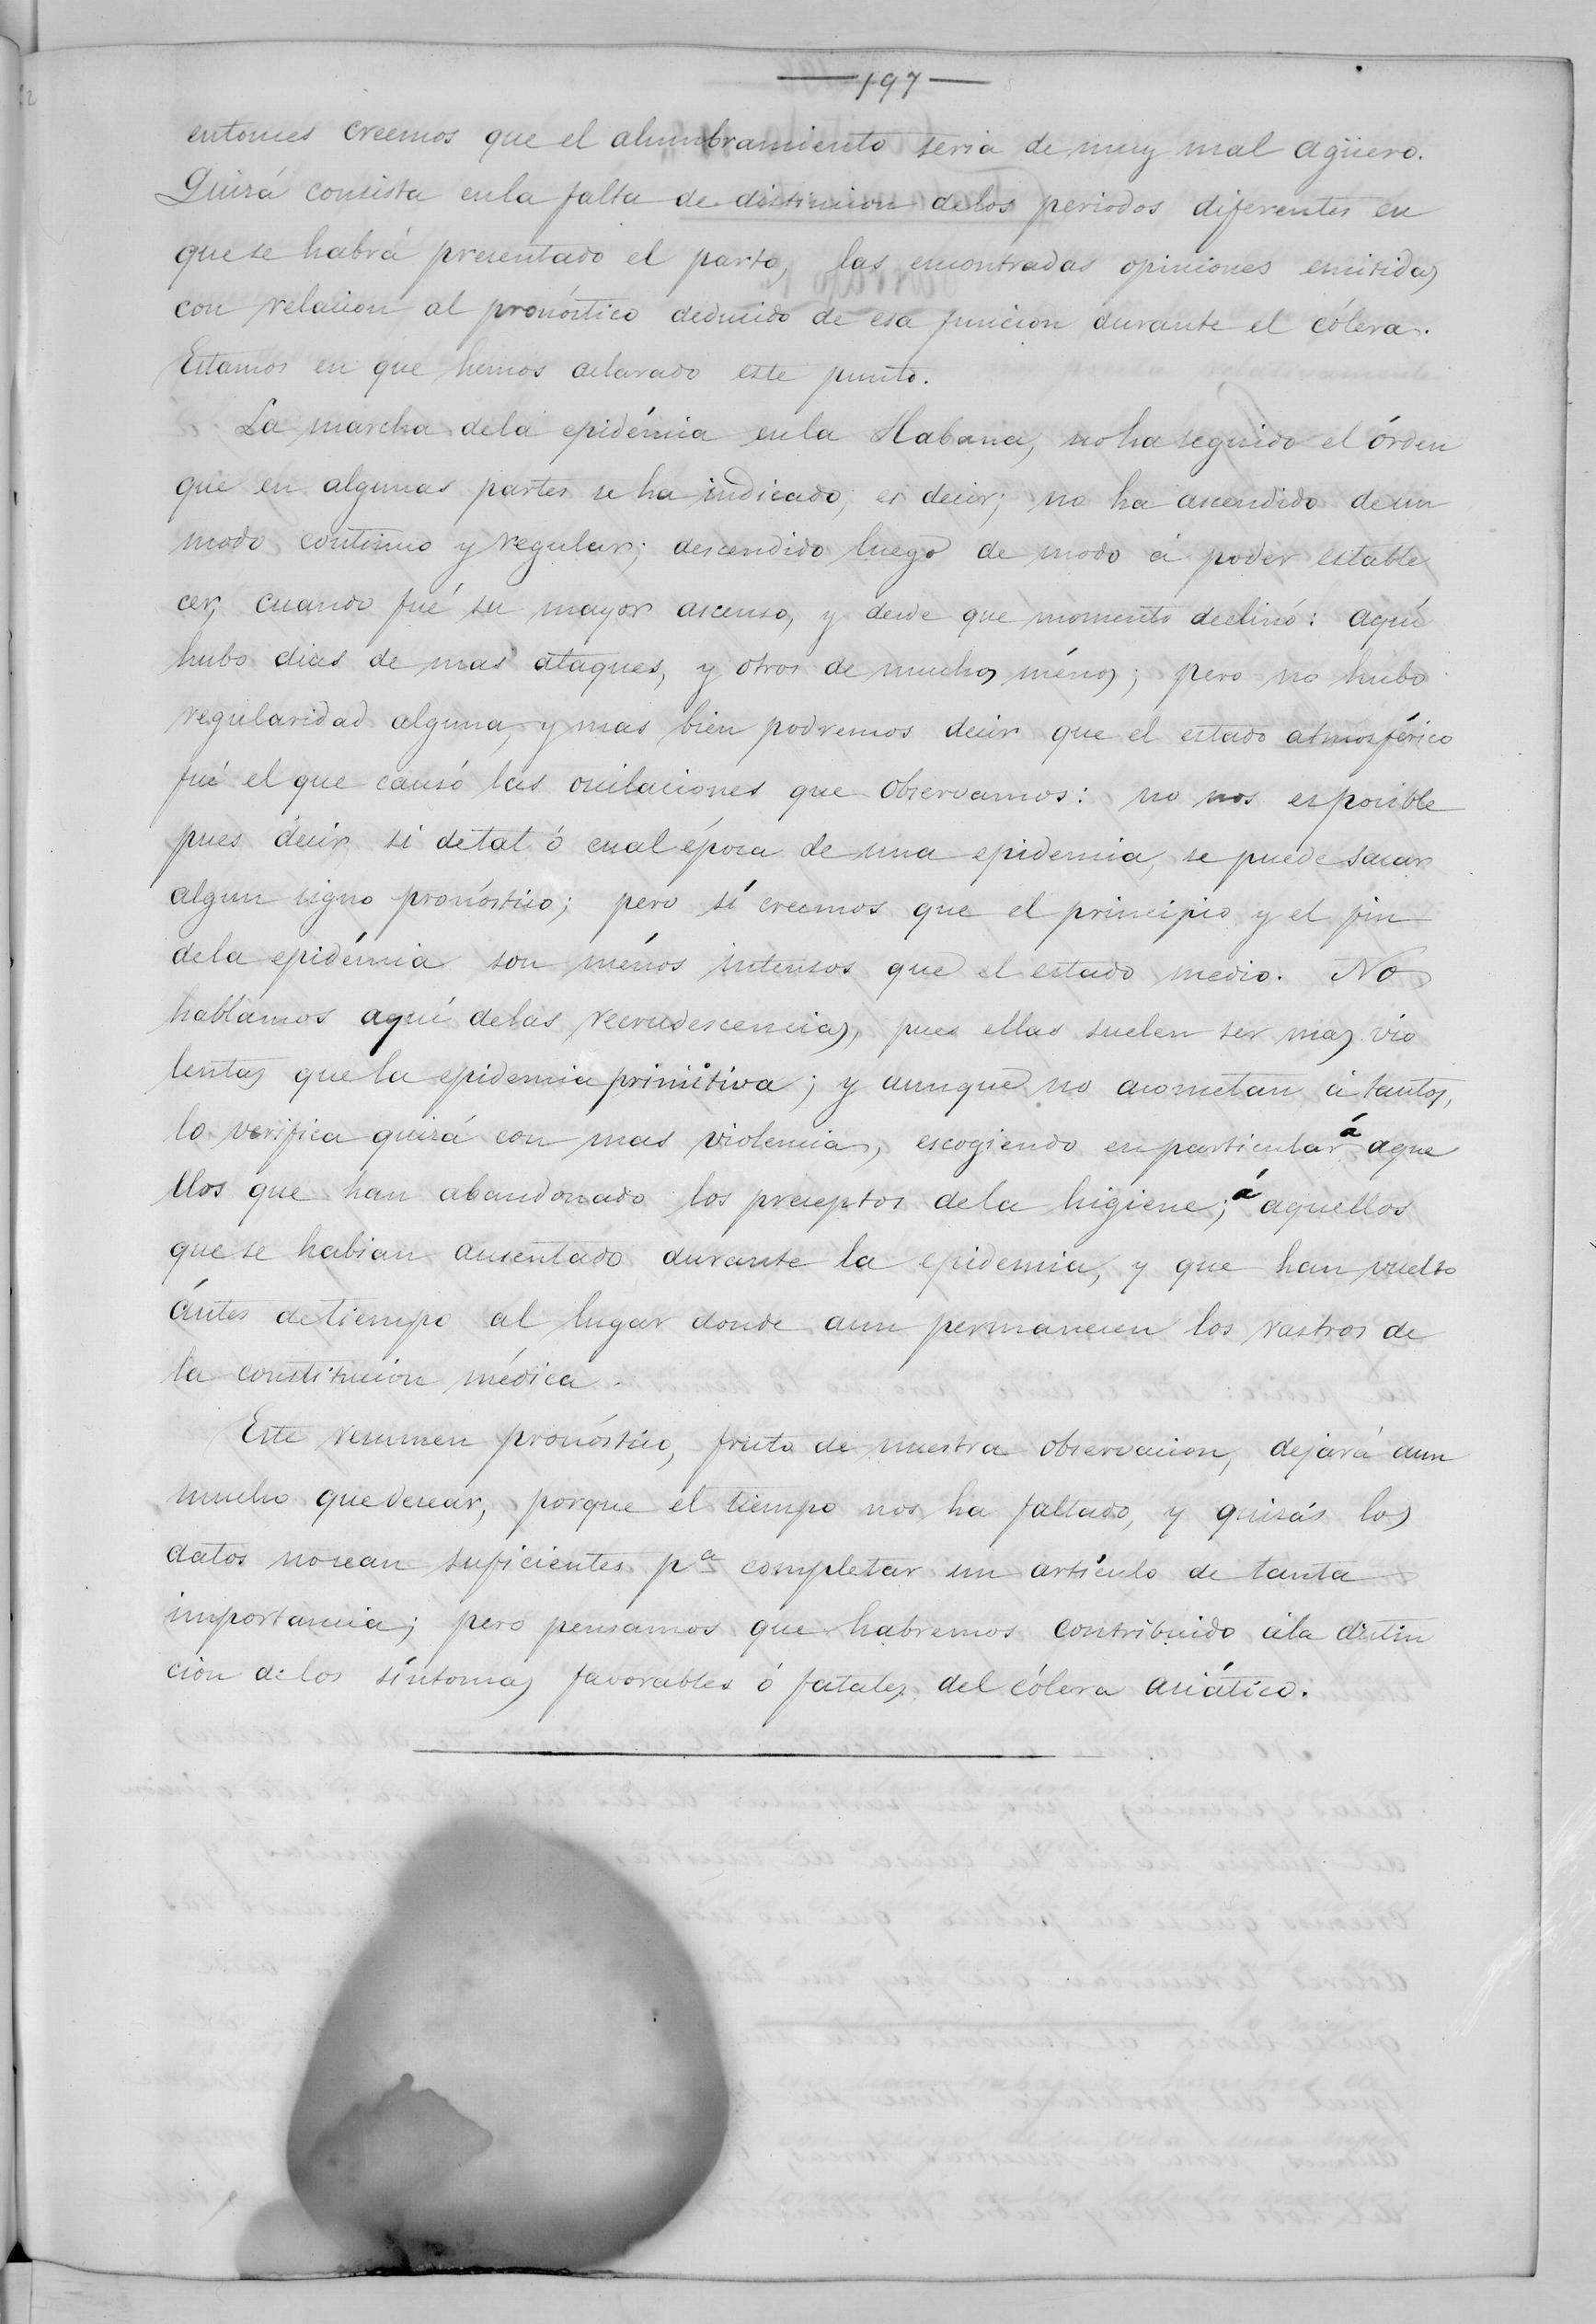 — 197 —
entonces creemos que el alumbramiento seria de muy mal agüero.
Quizá consista en la falta de distincion de los periodos diferentes en
que se habrá presentado el parto, las encontradas opiniones emitidas
con relacion al pronóstico deducido de esa funcion durante el cólera.
Estamos en que hemos aclarado este punto.
La marcha de la epidémia en la Habana, no ha seguido el órden
que en algunas partes se ha indicado, es decir; no ha ascendido de un
modo continuo y regular; descendido luego de modo á poder estable
cer, cuando fué su mayor ascenso, y desde que momento declinó: aquí
hubo dias de mas ataques, y otros de muchos ménos; pero no hubo
regularidad alguna, y mas bien podremos decir que el estado atmosférico
fué el que causó las oscilaciones que observamos: no nos es posible
pues decir si de tal ó cual época de una epidemia, se puede sacar
algun signo pronóstico; pero sí creemos que el principio y el fin
de la epidémia son ménos intensos que el estado medio. No
hablamos aquí de las recrudescencias, pues ellas suelen ser mas vio
lentas que la epidemia primitiva; y aunque no acometan á tantos,
lo verifica quizá con mas violencia, escogiendo en particular á aque
llos que han abandonado los preceptos de la higiene; á aquellos
que se habian ausentado durante la epidemia, y que han vuelto
ántes de tiempo al lugar donde aun permanecen los rastros de
la constitucion médica.
Este resumen pronóstico, fruto de nuestra observacion, dejará aun
mucho que desear, porque el tiempo nos ha faltado, y quizás los
datos no sean suficientes pª completar un artículo de tanta
importancia; pero pensamos que habremos contribuido á la distin
cion de los síntomas favorables ó fatales del cólera asiático.